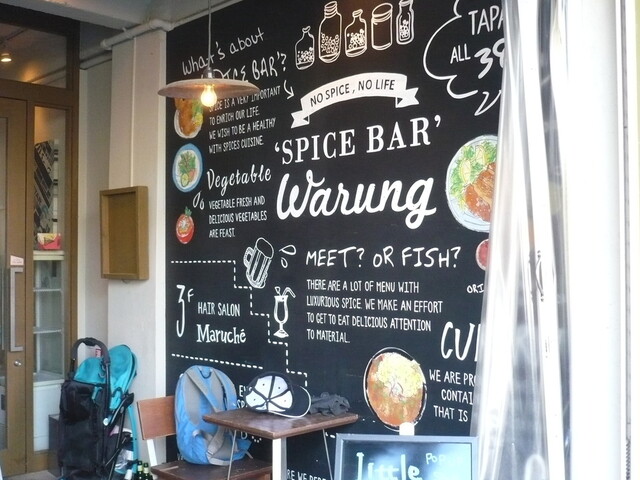 What's about
SPICE BAR'?
SPICE IS A VERY IMPORTANT
TO ENRICH OUR LIFE.
WE WISH TO BE A HEALTHY
WITH SPICES CUISINE.
Vegetable
VEGETABLE FRESH AND
DELICIOUS VEGETABLES
ARE FEAST.
TAPA
ALL 39
NO SPICE, NO LIFE
'SPICE BAR'
Warung
MEET? OR FISH?
THERE ARE A LOT OF MENU WITH
LUXURIOUS SPICE. WE MAKE AN EFFORT
TO GET TO EAT DELICIOUS ATTENTION
TO MATERIAL.
ORI
3F
HAIR SALON
Maruché
CU
WE ARE PR
CONTAI
THAT IS
Little
POP